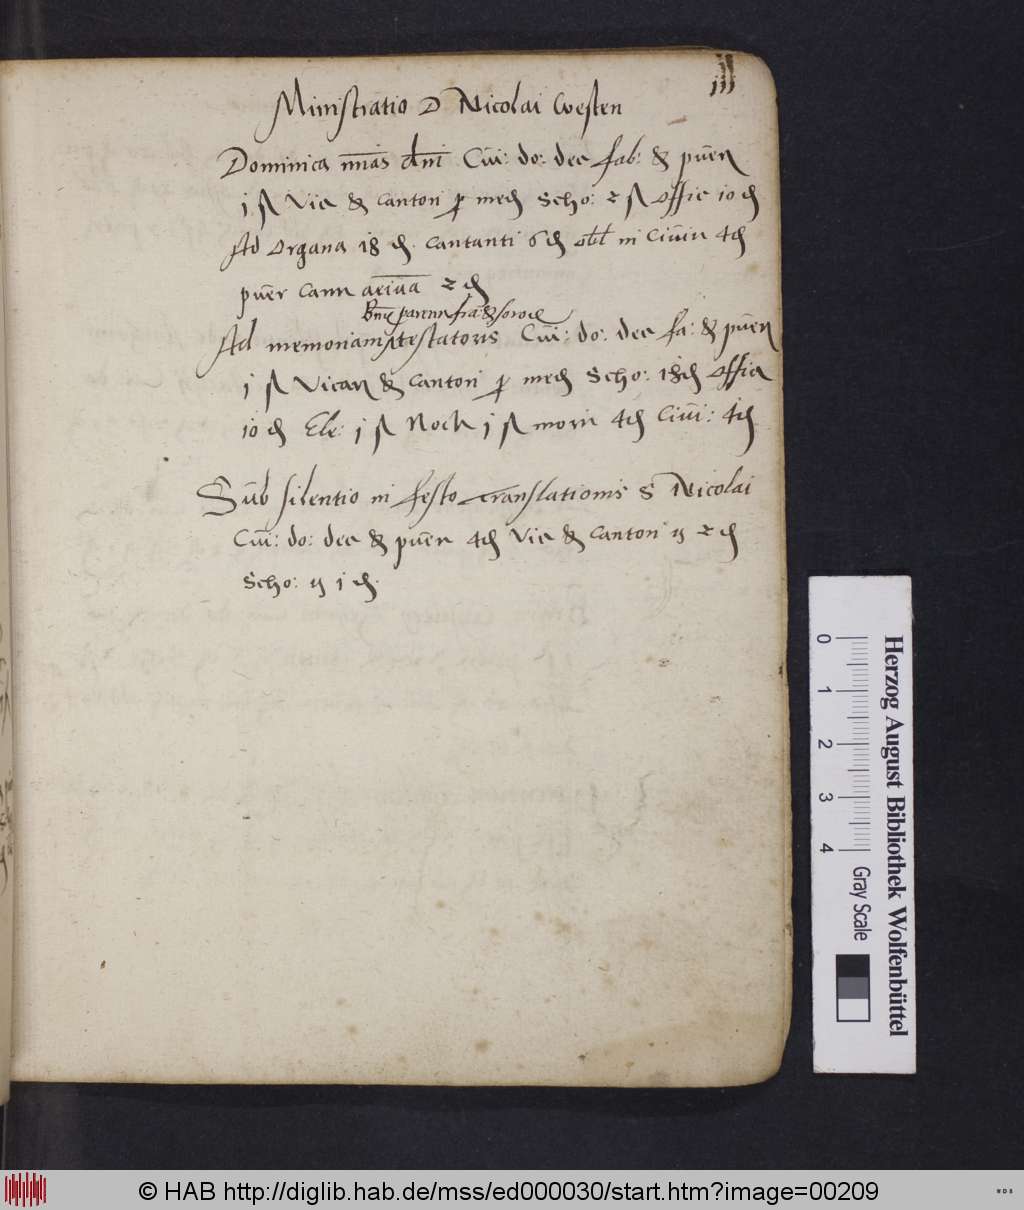 iii
Ministratio D Nicolai Westen
Dominica dni Cui: do: dec fab: & puer
j ß Vic & Cantori p med Scho: 2 ß offic 10 d
Ad organa 18 d. Cantanti 6 d obl in Civin 4 d
puer cann 2 d
paren fra & soror
Ad memoriam testatoris Cui: do: dec fa: & puer
j ß Vicar & Cantori p med Scho: 18 d offic
10 d Ele: j ß Noch j ß morin 4 d Civi: 4 d
Sub silentio in festo translationis S Nicolai
Cui: do: dec & puer 4 d Vic & Cantori 2 d
Scho: 1 d.
Herzog August Bibliothek Wolfenbüttel
0 1 2 3 4 Gray Scale
© HAB http://diglib.hab.de/mss/ed000030/start.htm?image=00209